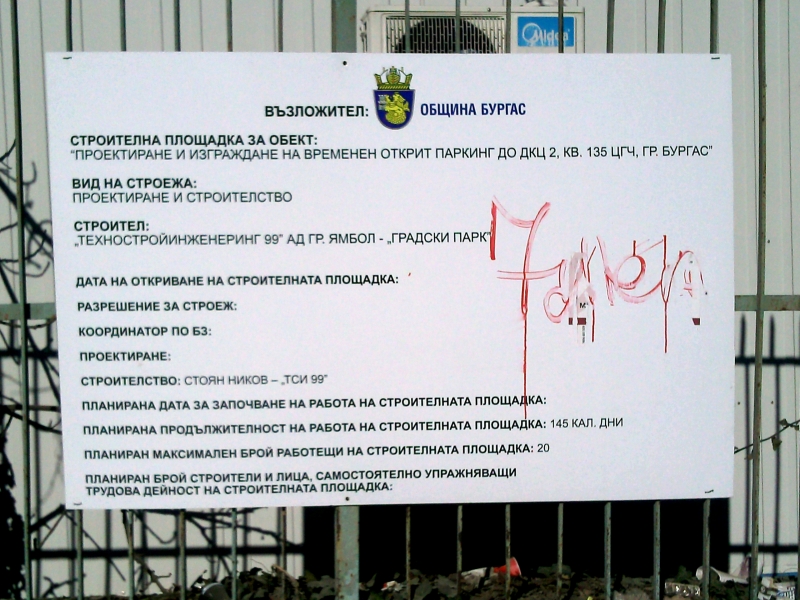 Midea
ВЪЗЛОЖИТЕЛ: ОБЩИНА БУРГАС
СТРОИТЕЛНА ПЛОЩАДКА ЗА ОБЕКТ:
"ПРОЕКТИРАНЕ И ИЗГРАЖДАНЕ НА ВРЕМЕНЕН ОТКРИТ ПАРКИНГ ДО ДКЦ 2, КВ. 135 ЦГЧ, ГР. БУРГАС"
ВИД НА СТРОЕЖА:
ПРОЕКТИРАНЕ И СТРОИТЕЛСТВО
СТРОИТЕЛ:
„ТЕХНОСТРОЙИНЖЕНЕРИНГ 99" АД ГР. ЯМБОЛ - „ГРАДСКИ ПАРК"
ДАТА НА ОТКРИВАНЕ НА СТРОИТЕЛНАТА ПЛОЩАДКА:
РАЗРЕШЕНИЕ ЗА СТРОЕЖ:
КООРДИНАТОР ПО БЗ:
ПРОЕКТИРАНЕ:
СТРОИТЕЛСТВО: СТОЯН НИКОВ – „ТСИ 99"
ПЛАНИРАНА ДАТА ЗА ЗАПОЧВАНЕ НА РАБОТА НА СТРОИТЕЛНАТА ПЛОЩАДКА:
ПЛАНИРАНА ПРОДЪЛЖИТЕЛНОСТ НА РАБОТА НА СТРОИТЕЛНАТА ПЛОЩАДКА: 145 КАЛ. ДНИ
ПЛАНИРАН МАКСИМАЛЕН БРОЙ РАБОТЕЩИ НА СТРОИТЕЛНАТА ПЛОЩАДКА: 20
ПЛАНИРАН БРОЙ СТРОИТЕЛИ И ЛИЦА, САМОСТОЯТЕЛНО УПРАЖНЯВАЩИ
ТРУДОВА ДЕЙНОСТ НА СТРОИТЕЛНАТА ПЛОЩАДКА: